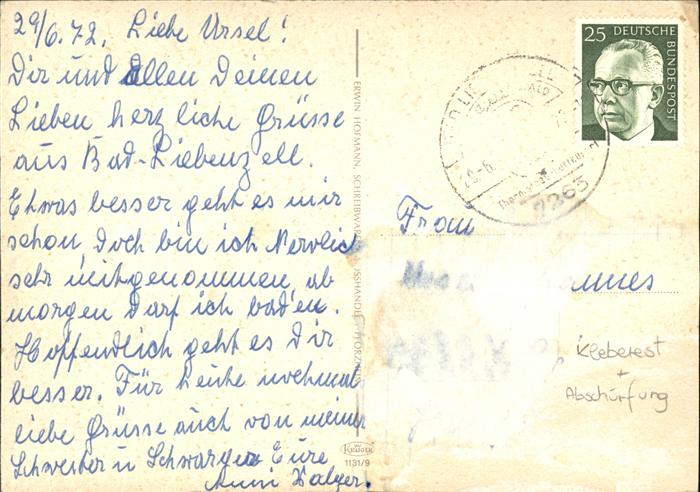 29/6.72. Liebe Ursel!
Dir und Allen Deinen
Lieben herzliche Grüsse
aus Bad-Liebenzell.
Etwas besser geht es mir
schon, Doch bin ich Nervlich
sehr mitgenommen, ab
morgen darf ich baden.
Hoffendlich geht es Dir
besser. Für heute nochmal
liebe Grüsse auch von meiner
Schwester u Schwager Eure
Anni
ERWIN HOFMANN, SCHREIBWAR
SSHANDEL, PFORZHEIM
KRÜGER
1131/9
25 DEUTSCHE
BUNDESPOST
7263
Frau
Kleberest
+
Abschürfung